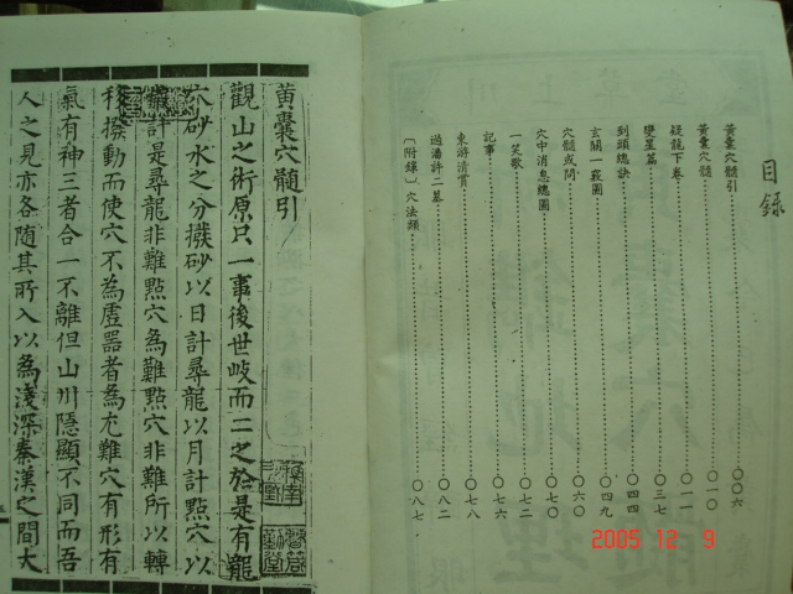 目錄
黃囊穴髓引 〇〇六
黃囊穴髓 〇一〇
疑龍下卷 〇一一
變星篇 〇三七
到頭總訣 〇四四
玄關一竅圖 〇四九
穴髓或問 〇六〇
穴中消息總圖 〇七〇
一笑歌 〇七二
記事 〇七六
東游清賞 〇七八
過潘許二墓 〇八二
〔附錄〕穴法類 〇八七
黃囊穴髓引
觀山之術原只一事後世岐而二之於是有龍
穴砂水之分撥砂以日計尋龍以月計點穴以
計是尋龍非難點穴為難點穴非難所以轉
移撥動而使穴不為虛器者為尤難穴有形有
氣有神三者合一不離但山川隱顯不同而吾
人之見亦各隨其所入以為淺深秦漢之間大
五
2005 12 9